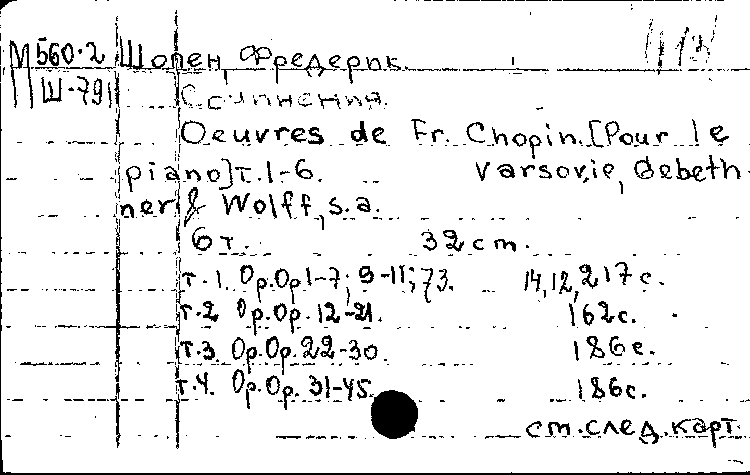 М 560-2 Шопен, Фредерик.
Ш-791 Сочинения.
Oeuvres de Fr. Chopin. [Pour le
piano] т.1-6. Varsovie, Gebeth-
ner & Wolff, s.a.
6 т. 32 cm.
т.1. Op.Op.1-7; 9-11; 73. 14,12,217 с.
т.2 Op.Op. 12-21. 162с.
т.3 Op.Op. 22-30. 186с.
т.4. Op.Op. 31-45. 186с.
ст.след.карт.